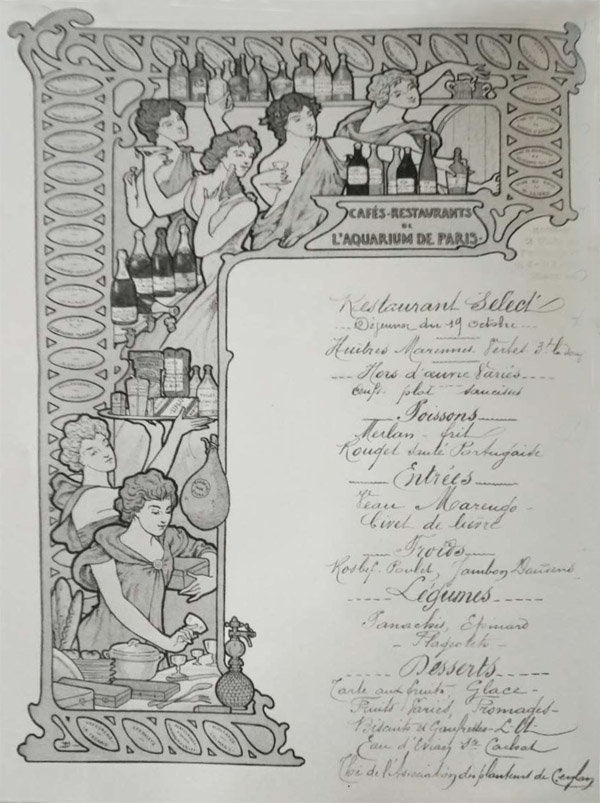 CAFÉS-RESTAURANTS
DE
L'AQUARIUM DE PARIS.
Restaurant Select
Déjeuner du 19 Octobre
Huîtres Marennes Vertes 3f la douz
Hors d'œuvre Variés
Oeufs plat saucisses
Poissons
Merlan frit
Rouget sauté Portugaise
Entrées
Veau Marengo
Civet de lièvre
Froids
Rosbif. Poulet. Jambon
Légumes
Panachés, Epinard
Flageolets
Desserts
Tarte aux fruits. Glace
Fruits Variés Fromages
Biscuits et Gaufrettes
Eau d'Evian Sce Cachat
Thé de l'Association des planteurs de Ceylan